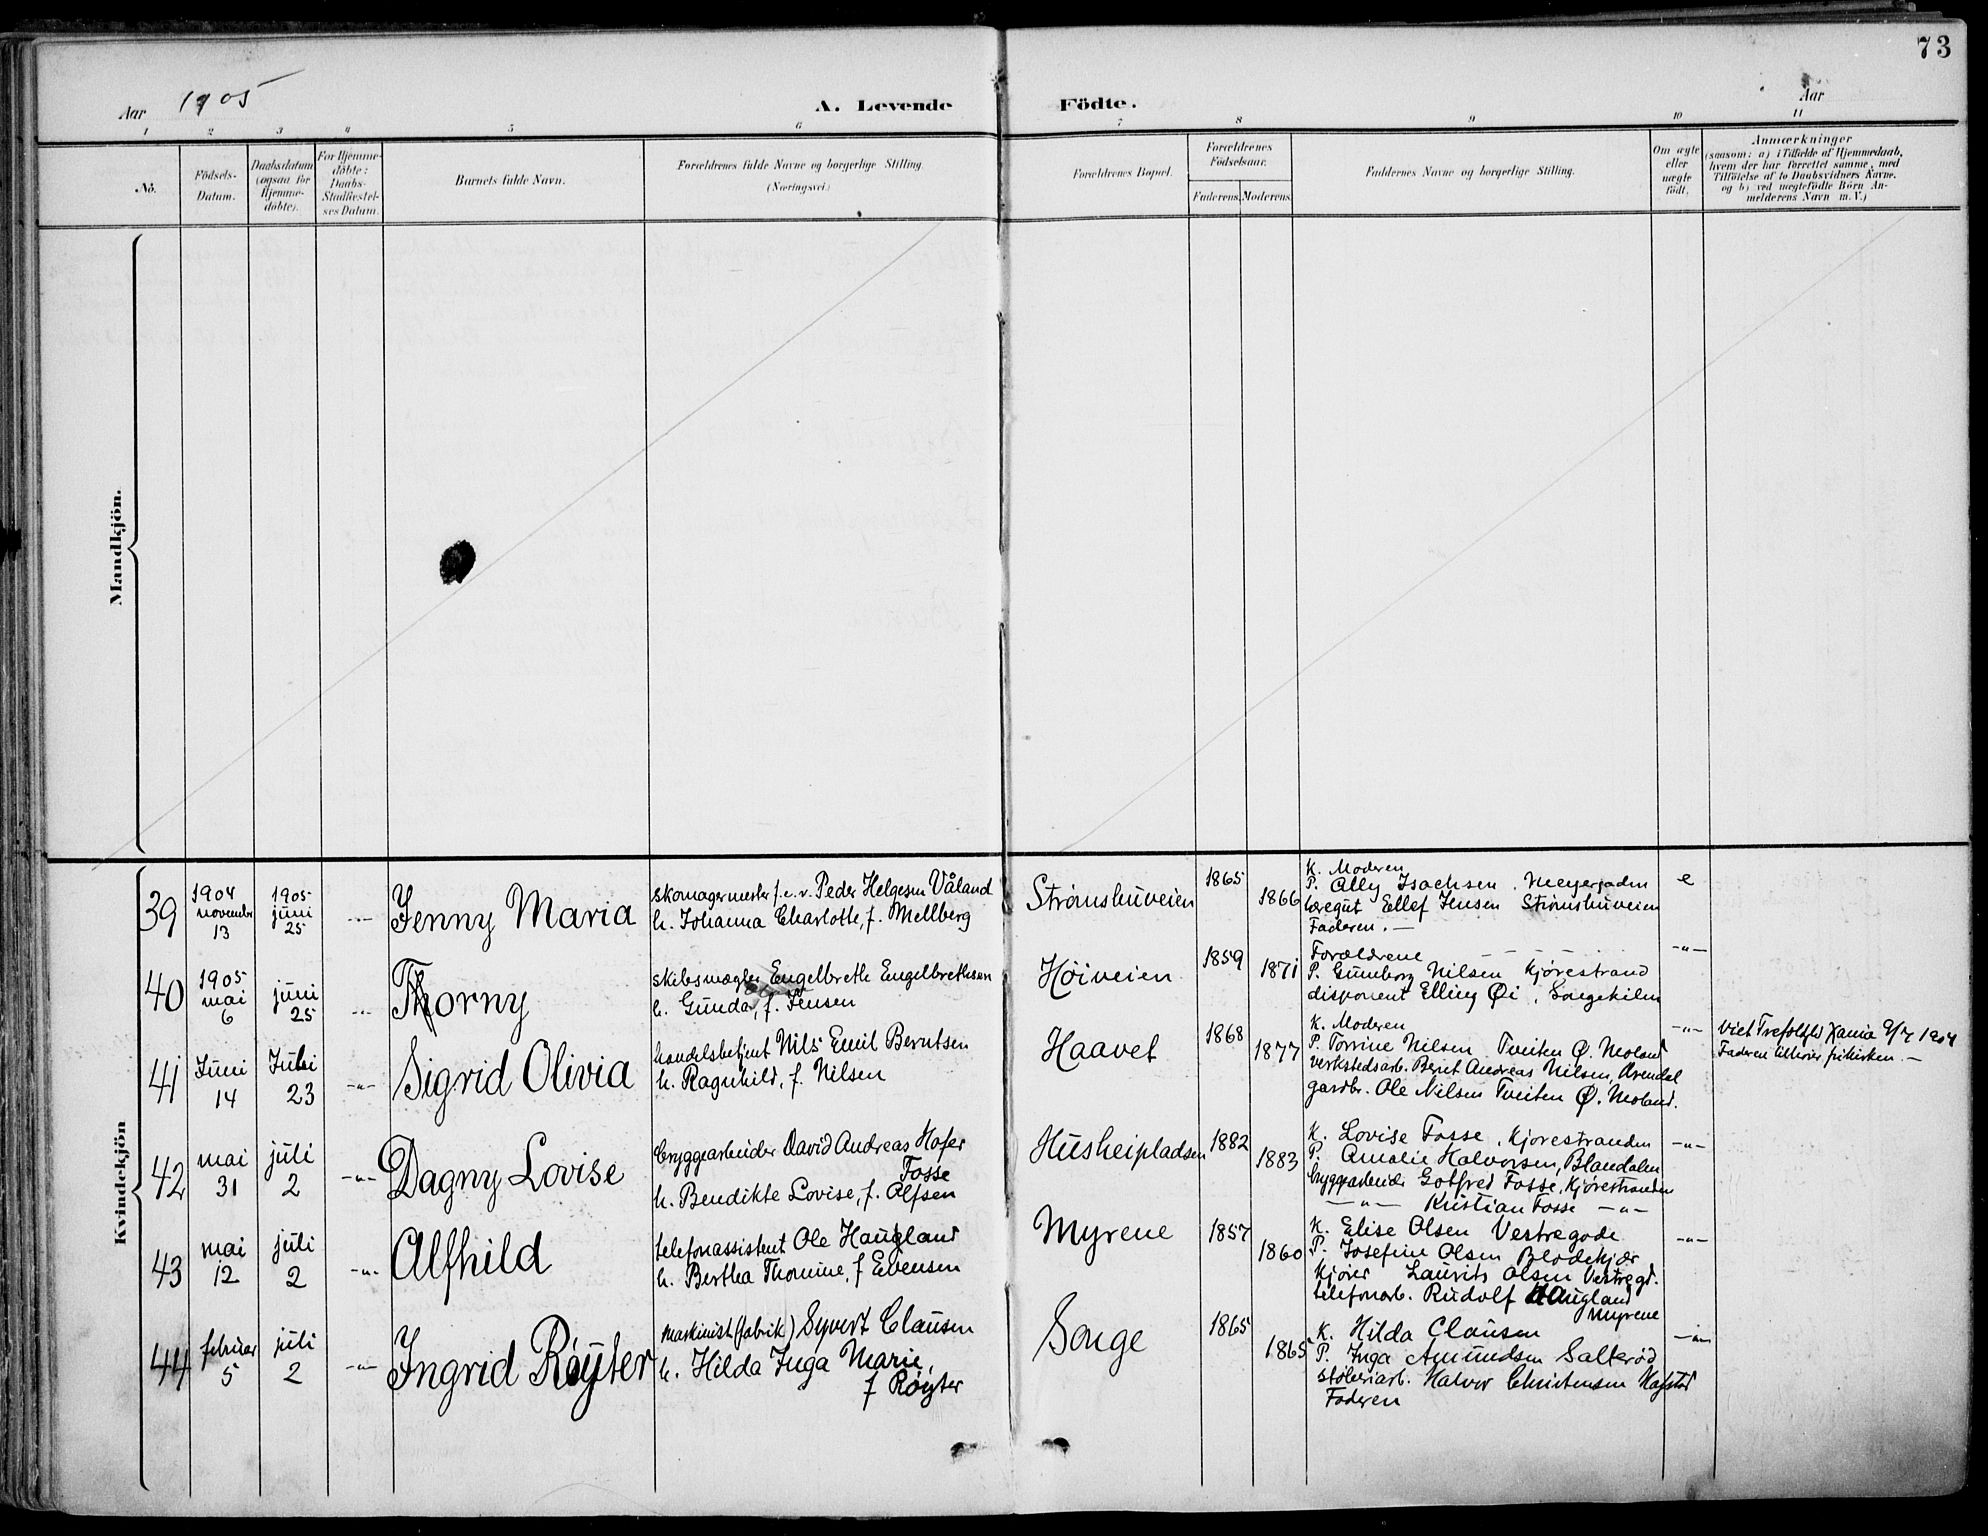 73
Aar 1905
A. Levende Födte.
Aar
1 2 3 4 5 6 7 8 9 10 11
No.
Födsels-
Datum.
Daabsdatum
(ogsaa for
Hjemme-
döbte).
For Hjemme-
döbte:
Daabs-
Stadfæstel-
ses Datum.
Barnets fulde Navn.
Forældrenes fulde Navne og borgerlige Stilling
(Næringsvei.)
Forældrenes Bopæl.
Forældrenes
Födselsaar.
Faderens. Moderens.
Faddernes Navne og borgerlige Stilling.
Om ægte
eller
uægte
født.
Anmærkninger
(saasom: a) i Tilfælde af Hjemmedaab,
hvem der har forrettet samme, med
Tilföielse af to Daabsvidners Navne.
og b) ved uægtefödte Börn An-
melderens Navn m. V.)
Mandkjön.
Kvindekjön
39
1904
november
13
1905
juni
25
Jenny Maria
skomagermester f.e.v. Peder Helgesen Våland
h. Johanna Charlotte, f. Mellberg
Strømshuveien
1865
1866
K. Moderen
P. Ally Isachsen, Meyergaden
læregut Ellef Jensen Strømshuveien
Faderen. —
e
40
1905
mai
6
juni
25
Thorny
skibsmægler Engelbreth Engelbrethsen
h. Gunda, f. Jensen
Høiveien
1859
1871
Forældrene — —
P. Gunborg Nilsen Kjørestrand
disponent Elling Øi, Songekilen
-"-
41
Juni
14
Juli
23
-"-
Sigrid Olivia
handelsbetjent Nils Emil Berntsen
h. Ragnhild, f. Nilsen
Haavet
1868
1877
K. Moderen
P. Torrine Nilsen Tveiten Ø. Moland
verkstedsarb. Berit Andreas Nilsen, Arendal
gardbr. Ole Nilsen Tveiten Ø. Moland.
-"-
Viet Trefoldhd Xania 9/7 1904
Faderen tilhører frikirken. —
42
mai
31
juli
2
-"-
Dagny Lovise
bryggearbeider David Andreas Hofer
Fosse
h. Bendikte Lovise, f. Olfsen
Husheipladsen
1882
1883
K. Lovise Fosse, Kjørestranden
P. Amalie Halvorsen, Blaudalen
bryggearbeider Gotfred Fosse, Kjørestranden
— " — Kristian Fosse — " —
-"-
43
mai
12
juli
2
-"-
Alfhild
telefonassistent Ole Haugland
h. Bertha Thomine, f Evensen
Myrene
1857
1860
K. Elise Olsen Vestregade
P. Josefine Olsen Blødekjær
Kjører Laurits Olsen Vestregd.
telefonarb. Rudolf Haugland
Myrene
-"-
44
februar
5
juli
2
-"-
Ingrid Røyter
maskinist (fabrik) Syvert Clausen
h. Hilda Inga Marie,
f Røyter
Songe
1865
1865
K. Hilda Clausen
P. Inga Amundsen Salterød
støberiarb. Halvor Christensen
Faderen
-"-